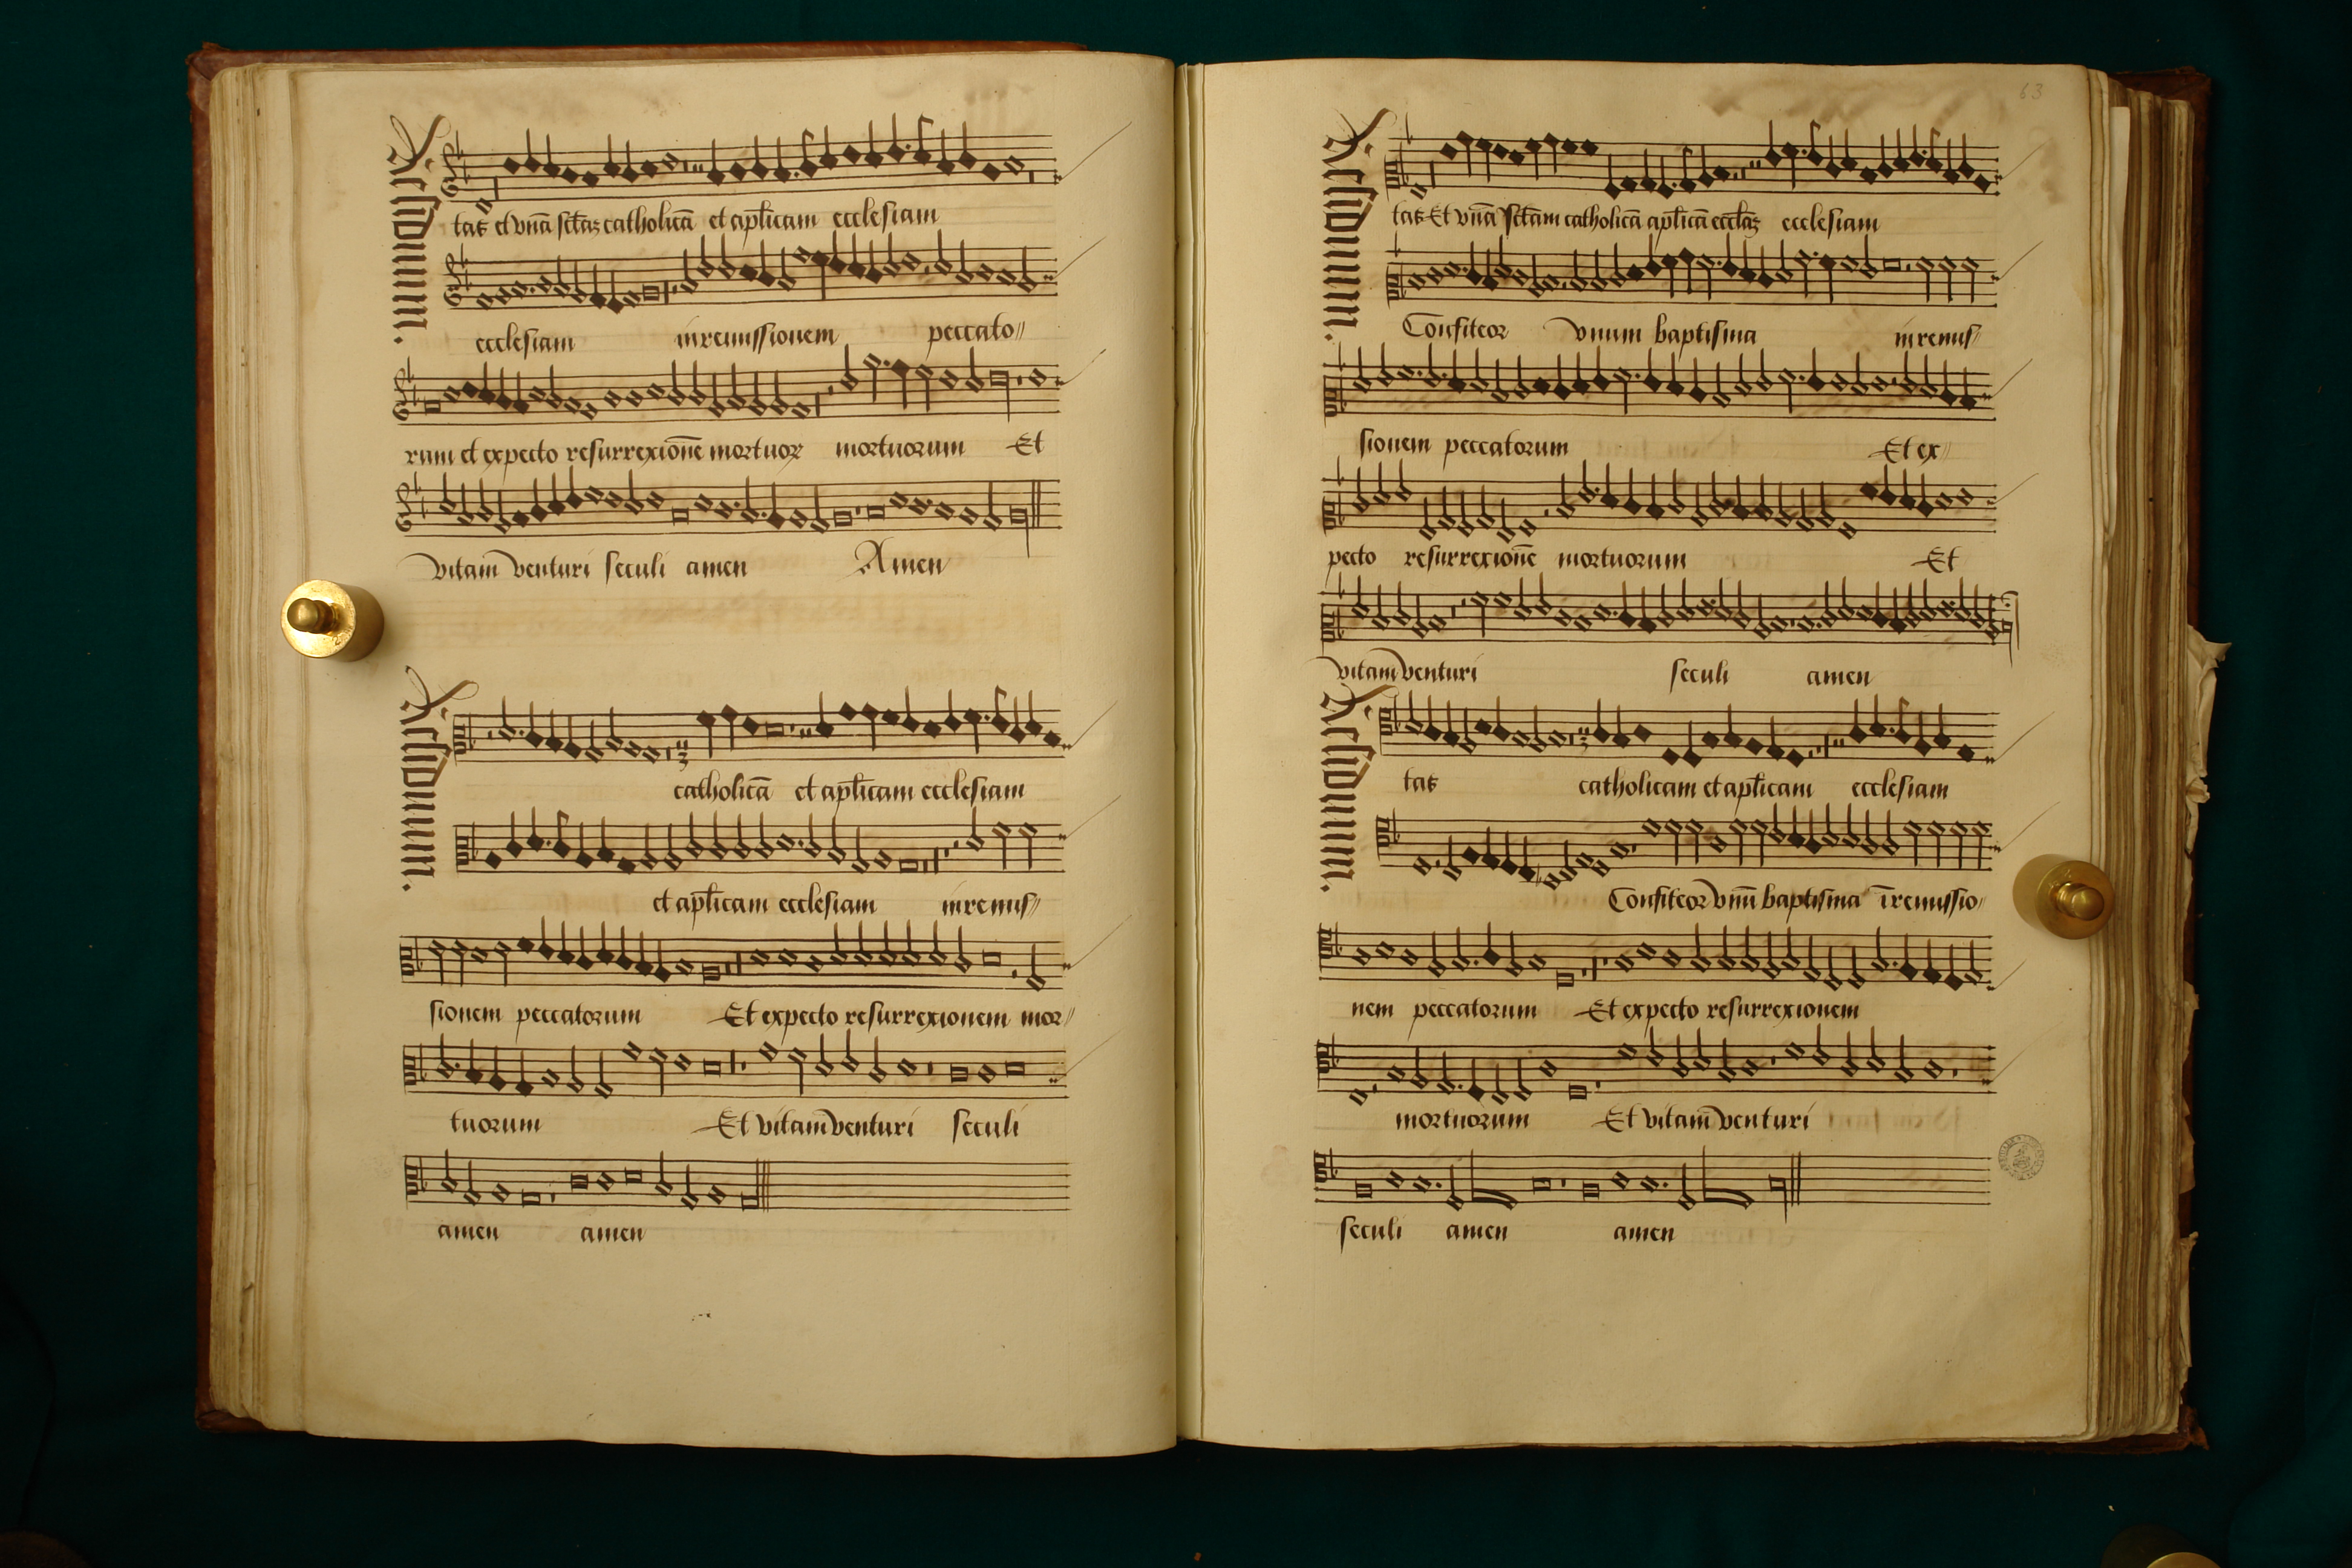 Residuum.
tas et vnā sctāz catholicā et apl̄icam ecclesiam
ecclesiam in remissionem peccato〃
rum et expecto resurrexionē mortuoꝝ mortuorum Et
vitam venturi seculi amen Amen
Residuum.
catholicā et apl̄icam ecclesiam
et apl̄icam ecclesiam in remis〃
sionem peccatorum Et expecto resurrexionem mor〃
tuorum Et vitam venturi seculi
amen amen
63
Residuum.
tas Et vnā sctām catholicā apl̄icā eccl̄az ecclesiam
Confiteor vnum baptisma in remis〃
sionem peccatorum Et ex〃
pecto resurrexionē mortuorum Et
vitam venturi seculi amen
Residuum.
tas catholicam et apl̄icam ecclesiam
Confiteor vnū baptisma ī remissio〃
nem peccatorum Et expecto resurrexionem
mortuorum Et vitam venturi
seculi amen amen